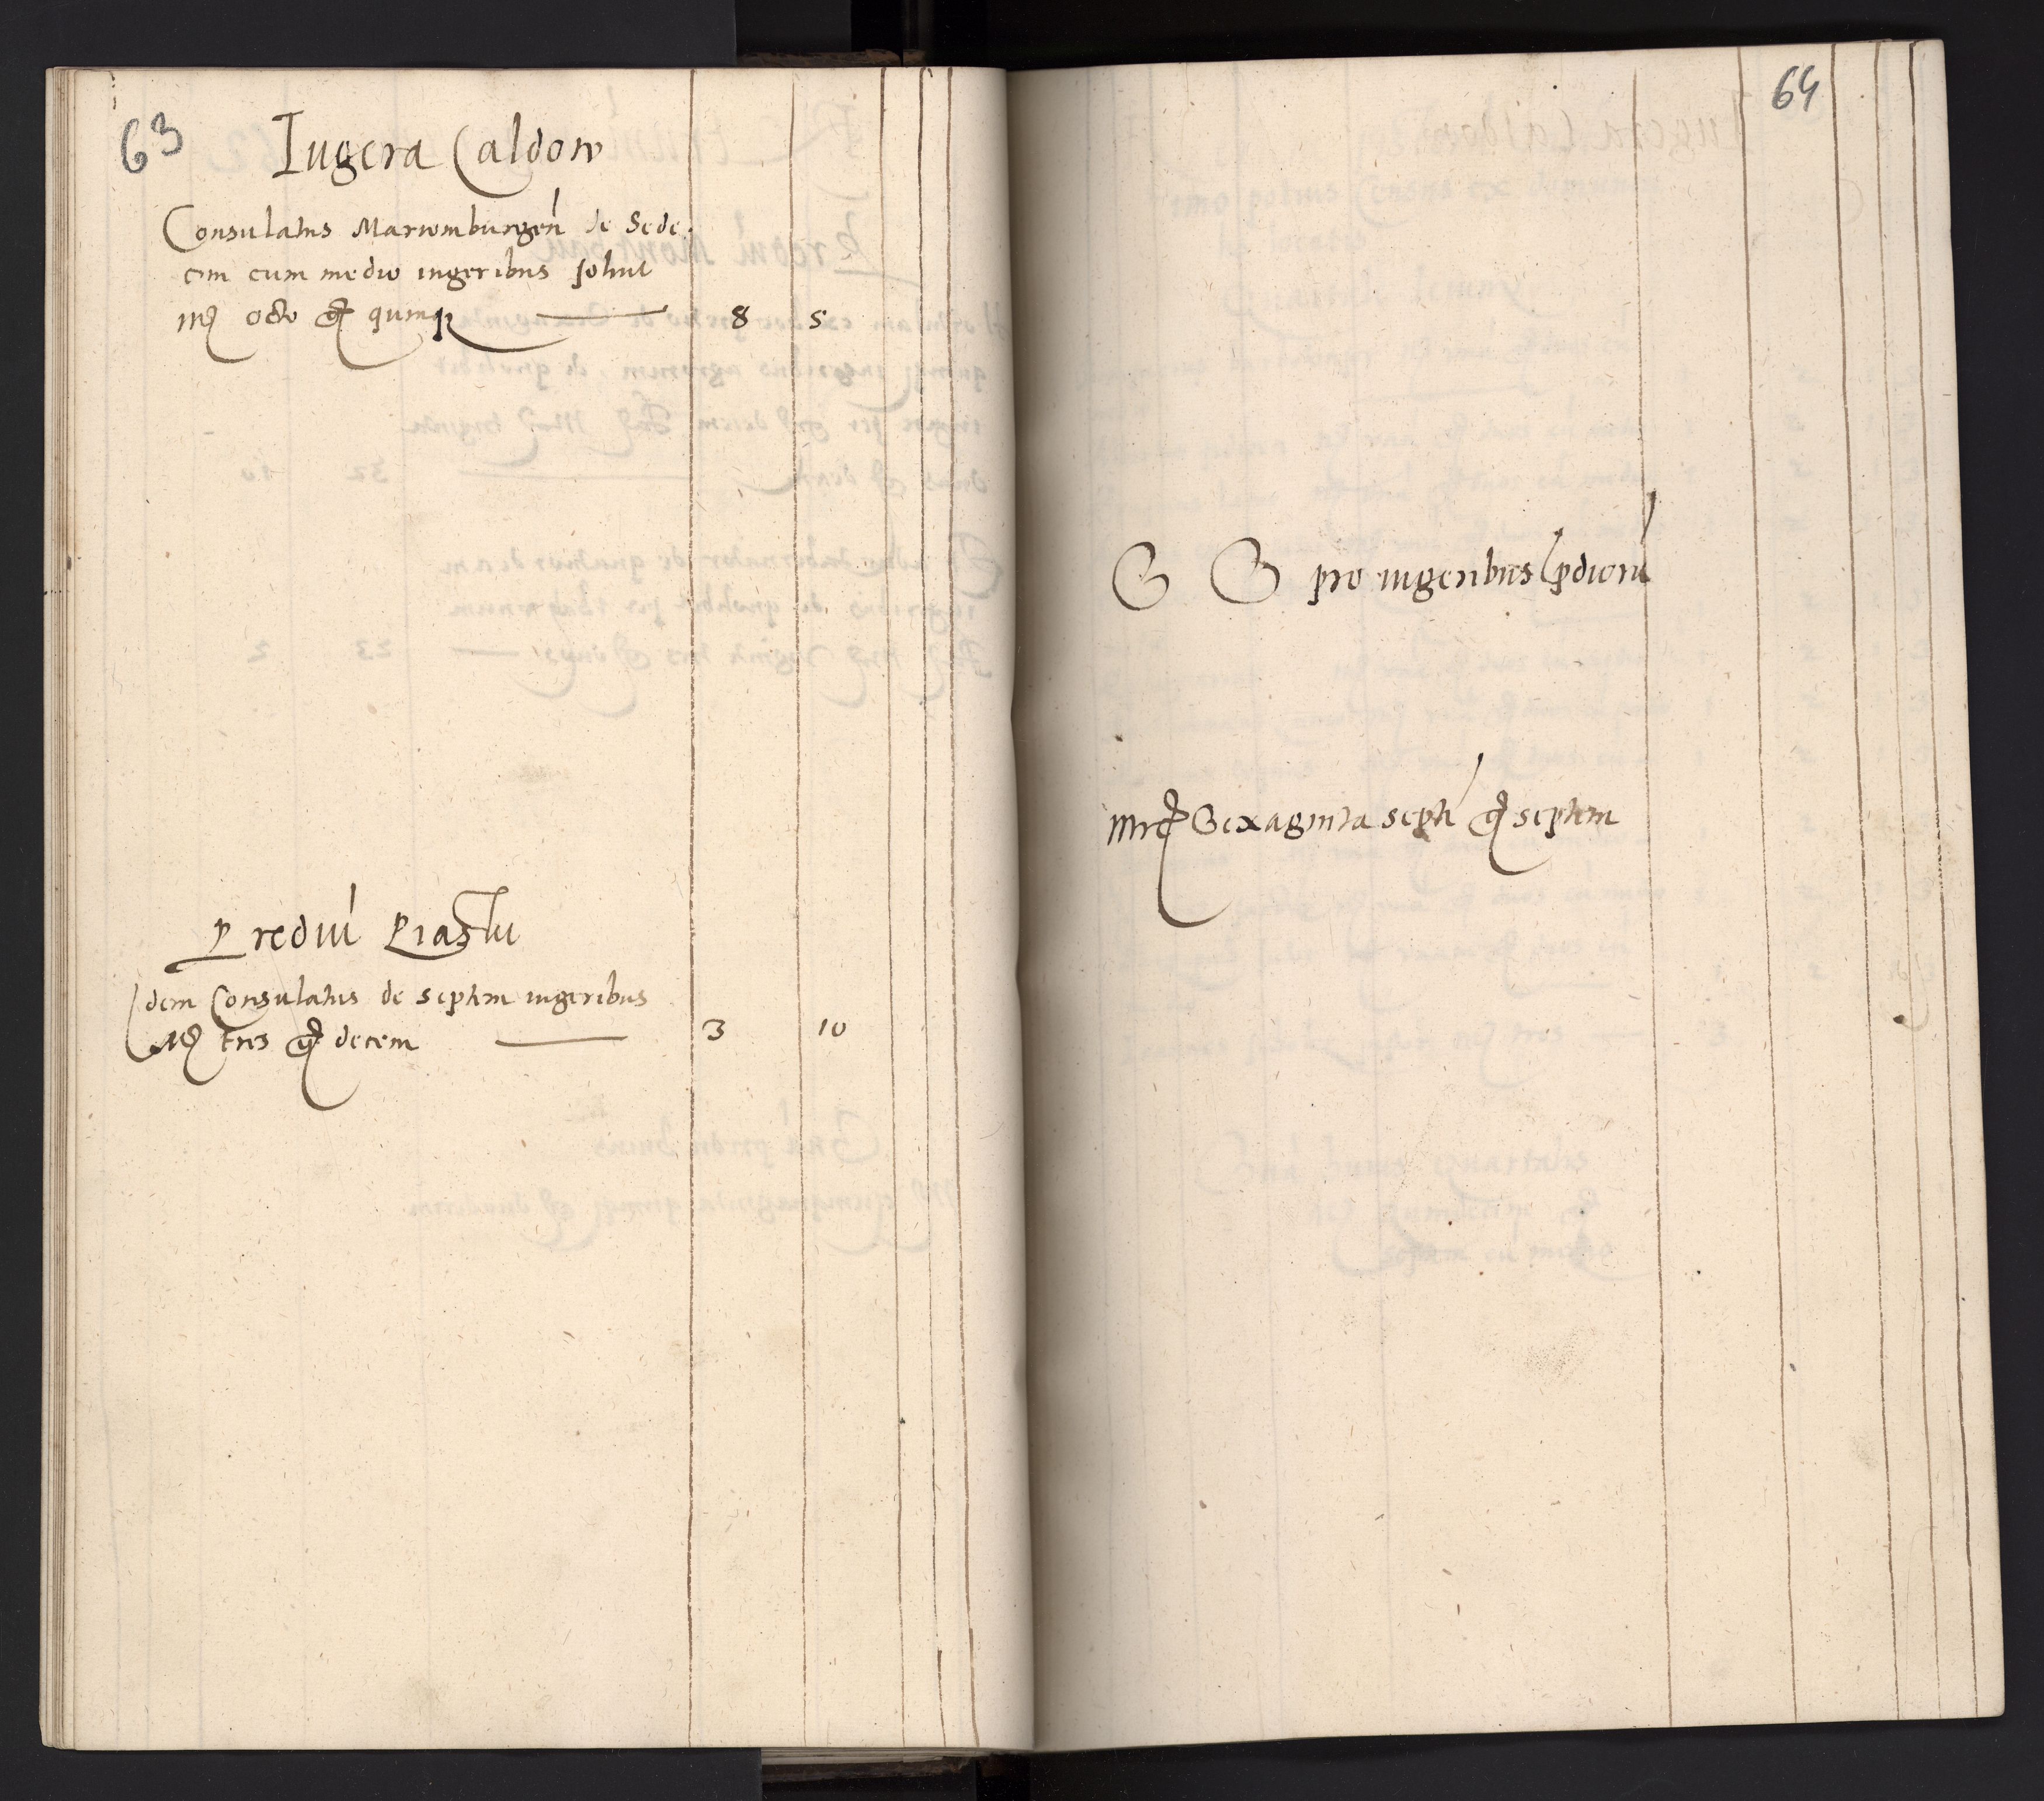 63
Iugera Caldow
Consulatus Mariemburgen de Sede
cim cum medio iugeribus soluit
mc octo g quinq 8 5
Prediu Piastu
Idem Consulatus de septem iugeribus
mc tres g decem 3 10
64
S S pro iugeribus prdioru
mrc Sexaginta septe g septem